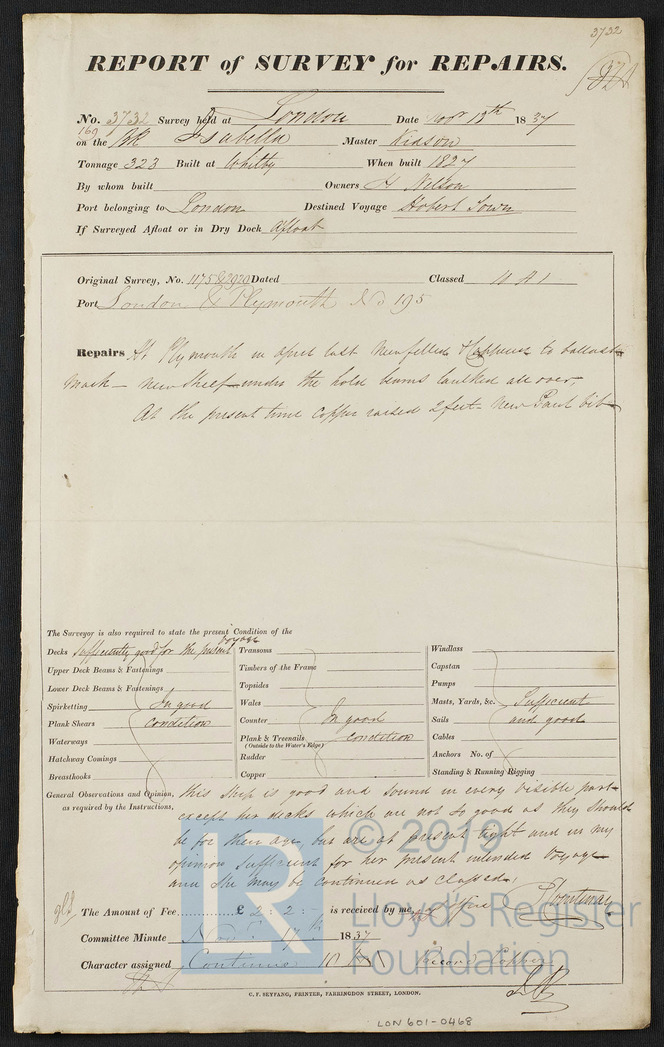 3732
REPORT of SURVEY for REPAIRS.
No. 3732 Survey held at London Date Novr 13th 1837
169
on the Bk Isabella Master Kidson
Tonnage 323 Built at Whitby When built 1827
By whom built Owners H Nelson
Port belonging to London Destined Voyage Hobert Town
If Surveyed Afloat or in Dry Dock Afloat
Original Survey, No. 1175 & 2920 Dated Classed 11 A 1
Port London & Plymouth No 195
Repairs At Plymouth in April last new felted & coppered to ballast
mark - new Sheef under the hold beams Caulked all over,
At the present time copper raised 2 feet - New Paul bit
The Surveyor is also required to state the present Condition of the
Decks Sufficiently good for the present voyage
Upper Deck Beams & Fastenings
Lower Deck Beams & Fastenings
Spirketting In good
Plank Shears condition
Waterways
Hatchway Comings
Breasthooks
Transoms
Timbers of the Frame
Topsides
Wales
Counter In good
Plank & Treenails condition
(Outside to the Water's Edge)
Rudder
Copper
Windlass
Capstan
Pumps
Masts, Yards, &c. Sufficient
Sails and good
Cables
Anchors No. of
Standing & Running Rigging
General Observations and Opinion, this Ship is good and sound in every visible part
as required by the Instructions, except her decks which are not so good as they should
be for their age, but are at present tight and in my
opinion sufficient for her present intended Voyage
and she may be continued as classed.
The Amount of Fee £ 2: 2: - is received by me,
Committee Minute Novr 17th 1837
Character assigned Continue 10 A1 Record Copper
C. F. SEYFANG, PRINTER, FARRINGDON STREET, LONDON.
LON 601-0468
© 2019
Lloyd's Register
Foundation